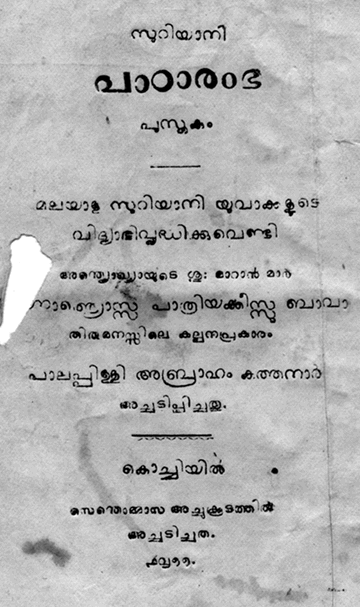 സുറിയാനി
പാഠാരംഭ
പുസ്തകം
മലയാള സുറിയാനി യുവാക്കളുടെ
വിദ്യാഭിവൃദ്ധിക്കുവെണ്ടി
അന്ത്യൊഖ്യായുടെ ശു: മാറാൻ മാർ
പാത്രിയക്കീസ്സു ബാവാ
തിരുമനസ്സിലെ കല്പനപ്രകാരം
പാലപ്പിള്ളി അബ്രാഹം കത്തനാർ
അച്ചടിപ്പിച്ചതു.
കൊച്ചിയിൽ
സെന്തൊമ്മാസ അച്ചുകൂടത്തിൽ
അച്ചടിച്ചത.